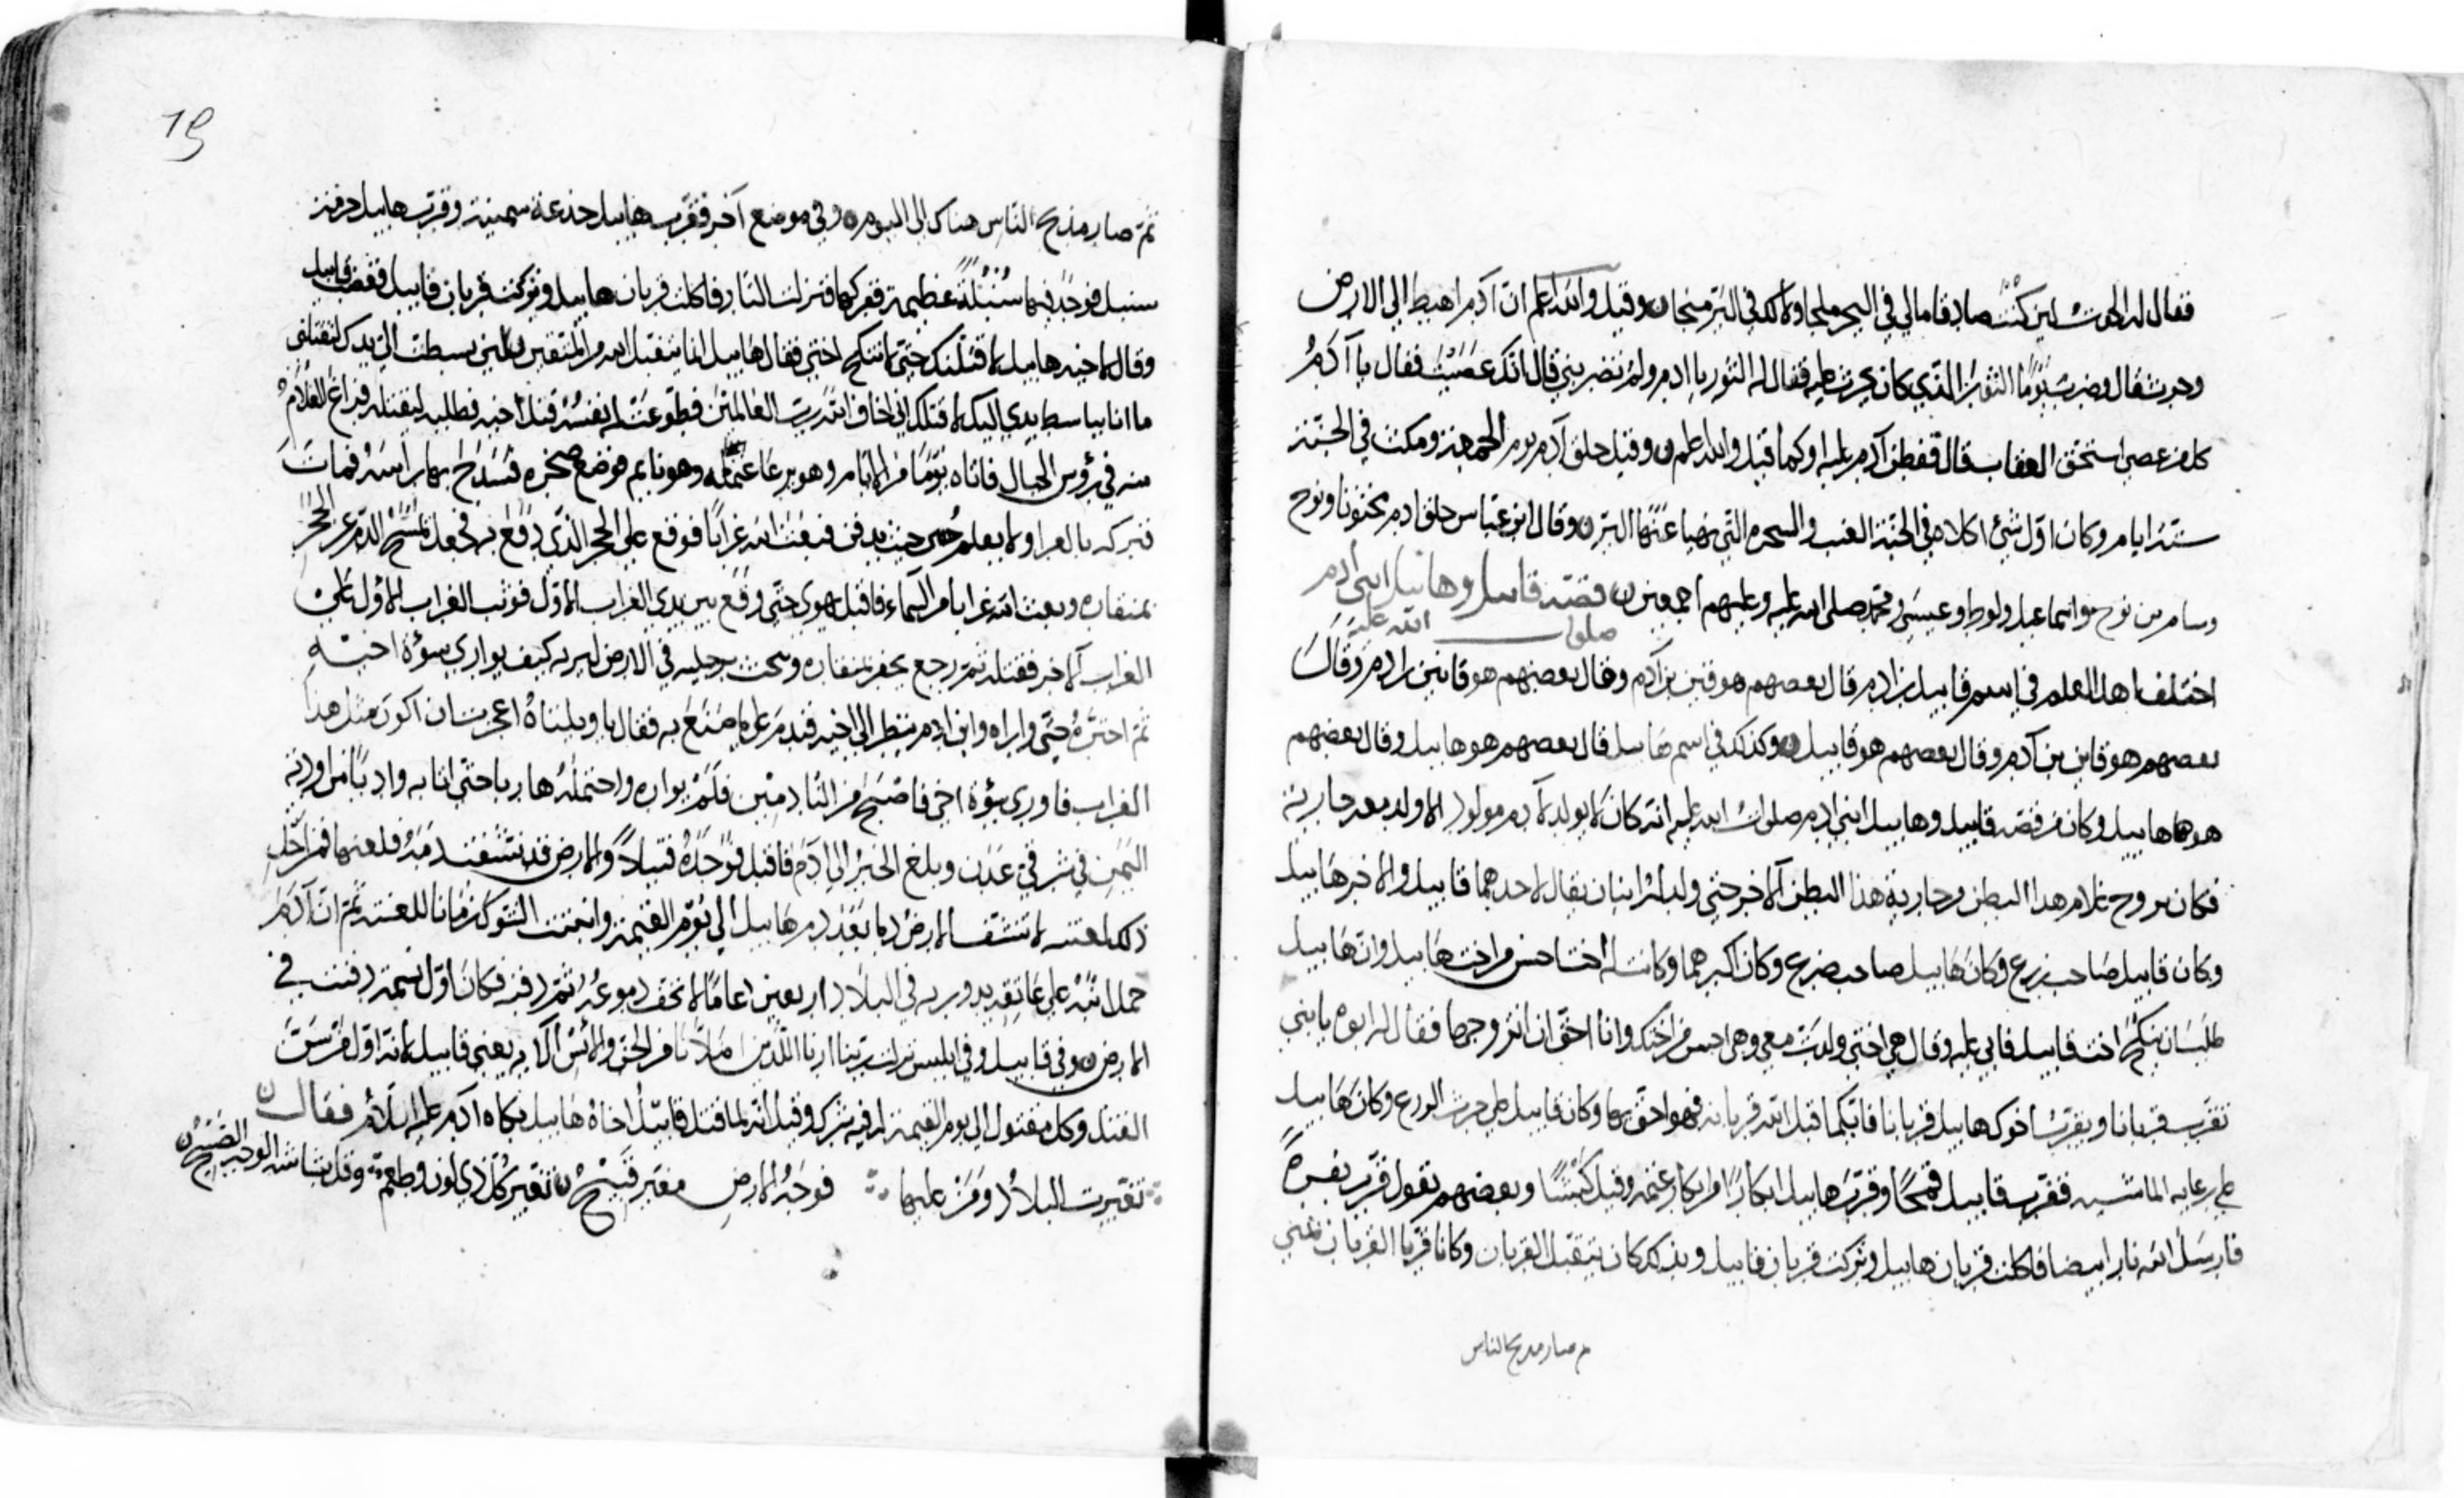 فقال له الحوت لين كنت صادقا مالي في البحر ملجا ولا لك في البر منجا ن وقيل والله اعلم ان آدم اهبط الي الارض
وحرث فقال وضرب يوما الثور الذي كان يحرث عليه فقال له الثور يا ادم ولم تضربني قال انك عصيت فقال يا آدم
كل من عصي استحق العقاب قال ففطن آدم عليه او كما قيل والله اعلم ن وقيل خلق آدم يوم الجمعة ومكث في الجنة
ستة ايام وكان اول شيء اكلاه في الجنة العنب والشجره التي نهيا عنها البر ن وقال ابن عباس خلق ادم مختونا ونوح
وسام بن نوح واسماعيل ولوط وعيسى ومحمد صلى الله عليه وعليهم اجمعين ن قصة قابيل وهابيل ابني ادم
صلوات الله عليه
اختلف اهل العلم في اسم قابيل بن ادم قال بعضهم هو قين بن آدم وقال بعضهم هو قائين بن ادم وقال
بعضهم هو قاين بن آدم وقال بعضهم هو قابيل ن وكذلك في اسم هابيل قال بعضهم هو هابيل وقال بعضهم
هو هاهابيل وكان من قصة قابيل وهابيل ابني ادم صلوات الله عليه انه كان لا يولد لآدم مولود الا ولد معه جارية
فكان يزوج غلام هذا البطن وجارية هذا البطن الاخر حتى ولد له ابنان يقال لاحدهما قابيل والاخر هابيل
وكان قابيل صاحب زرع وكان هابيل صاحب ضرع وكان اكبرهما وكانت له اخت احسن من اخت هابيل وان هابيل
طلب ان ينكح اخت قابيل فابي عليه وقال هي اختي ولدت معي وهي احسن من اختك وانا احق ان اتزوجها فقال له ابوه يا بني
تقرب قربانا ويقرب اخوك هابيل قربانا فايكما قبل الله قربانه فهو احق بها وكان قابيل علي حرث الزرع وكان هابيل
علي رعاية الماشيه فقرب قابيل قمحا وقرب هابيل ابكارا من ابكار غنمه وقيل كبشا وبعضهم يقول قرب بقرة
فارسل الله نارا بيضا فاكلت قربان هابيل وتركت قربان قابيل وبذلك كان يتقبل القربان وكانا قربا القربان بمني
ثم صار مذبح الناس
19
ثم صار مذبح الناس هناك الى اليوم ن وفي موضع آخر فقرب هابيل جذعة سمينة وقرب هابيل حزمة
سنبل فوجد فيها سنبلة عظيمة ففركها فنزلت النار فاكلت قربان هابيل وتركت قربان قابيل فغضب قابيل
وقال لاخيه هابيل لاقتلنك حتى لا تنكح اختي فقال هابيل انما يتقبل الله من المتقين لئن بسطت الي يدك لتقتلني
ما انا بباسط يدي اليك لاقتلك اني اخاف الله رب العالمين فطوعت له نفسه قتل اخيه فطلبه ليقتله فراغ الغلام
منه في رؤس الجبال فاتاه يوما من الايام وهو يرعا غنما له وهو نايم فوضع صخره فشدخ بها راسه فمات
فتركه بالعرا ولا يعلم حيث يدفن فبعث الله غرابا فوقع علي الحجر الذي دفع به فجعل يمسح الدم عن الحجر
بمنقاره وبعث الله غرابا من السماء فاقبل يهوي حتى وقع بين يدي الغراب الاول فوثب الغراب الاول علي
الغراب الاخر فقتله ثم رجع يحفر بمنقاره ويبحث برجليه في الارض ليريه كيف يواري سوءة اخيه
ثم اجتره حتى واراه وابن ادم ينظر الى اخيه فندم على ما صنع به فقال يا ويلتاه اعجزت ان اكون مثل هذا
الغراب فاوري سوءة اخي فاصبح من النادمين فلم يواره واحتمله هاربا حتى اتا به واديا من اودية
اليمن في شرقي عدن وبلغ الخبر الى ادم فاقبل فوجده قتيلا والارض قد نشفت دمه فلعنها فمن اجل
ذلك لعنته لا تنشف الارض دما بعد دم هابيل الي يوم القيمة وانبتت الشوك زمانا للعنته ثم ان آدم
حمل ابنه على عاتقه يدور به في البلاد اربعين عاما لا تجف دموعه ثم دفنه فكان اول نسمة دفنت في
الارض ن وفي قابيل وفي ابليس نزلت ربنا ارنا اللذين اضلانا من الجن والانس الآية يعني قابيل لانه اول من سن
القتل وكل مقتول الى يوم القيمة له فيه شرك وقيل انه لما قتل قابيل اخاه هابيل بكاه آدم عليه السلام فقال ن
تغيرت البلاد ومن عليها فوجه الارض مغبر قبيح ن تغير كل ذي لون وطعم وقل بشاشة الوجه الصبيح ن